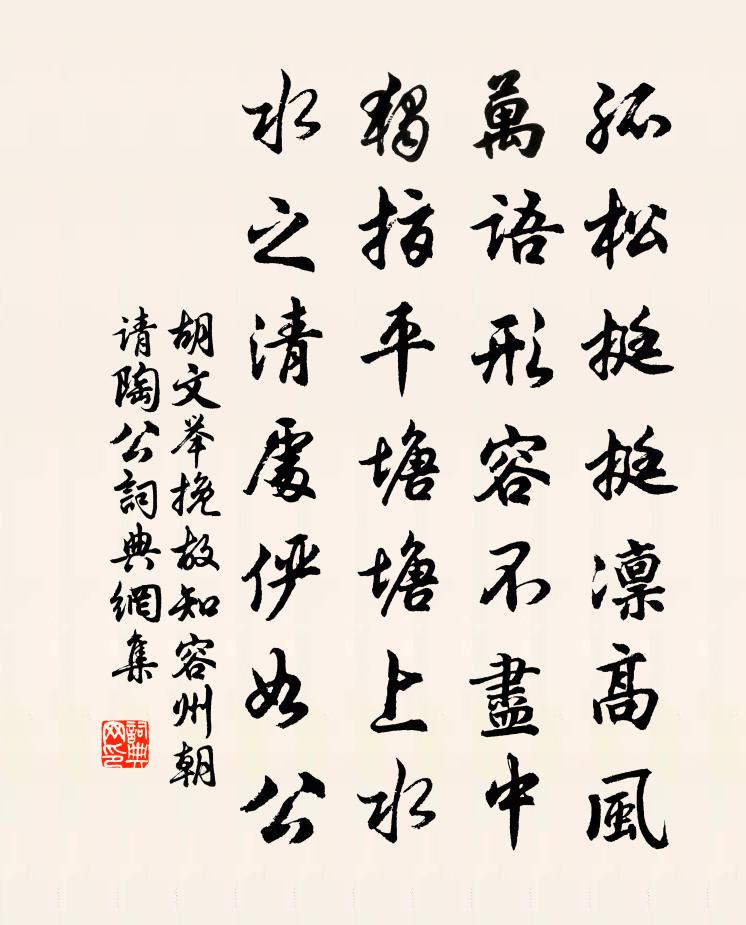 孤松挺挺凛高風
萬語形容不盡中
獨指平塘塘上水
水之清處俨如公
胡文举挽故知容州朝
请陶公詞典網集
詞典网印